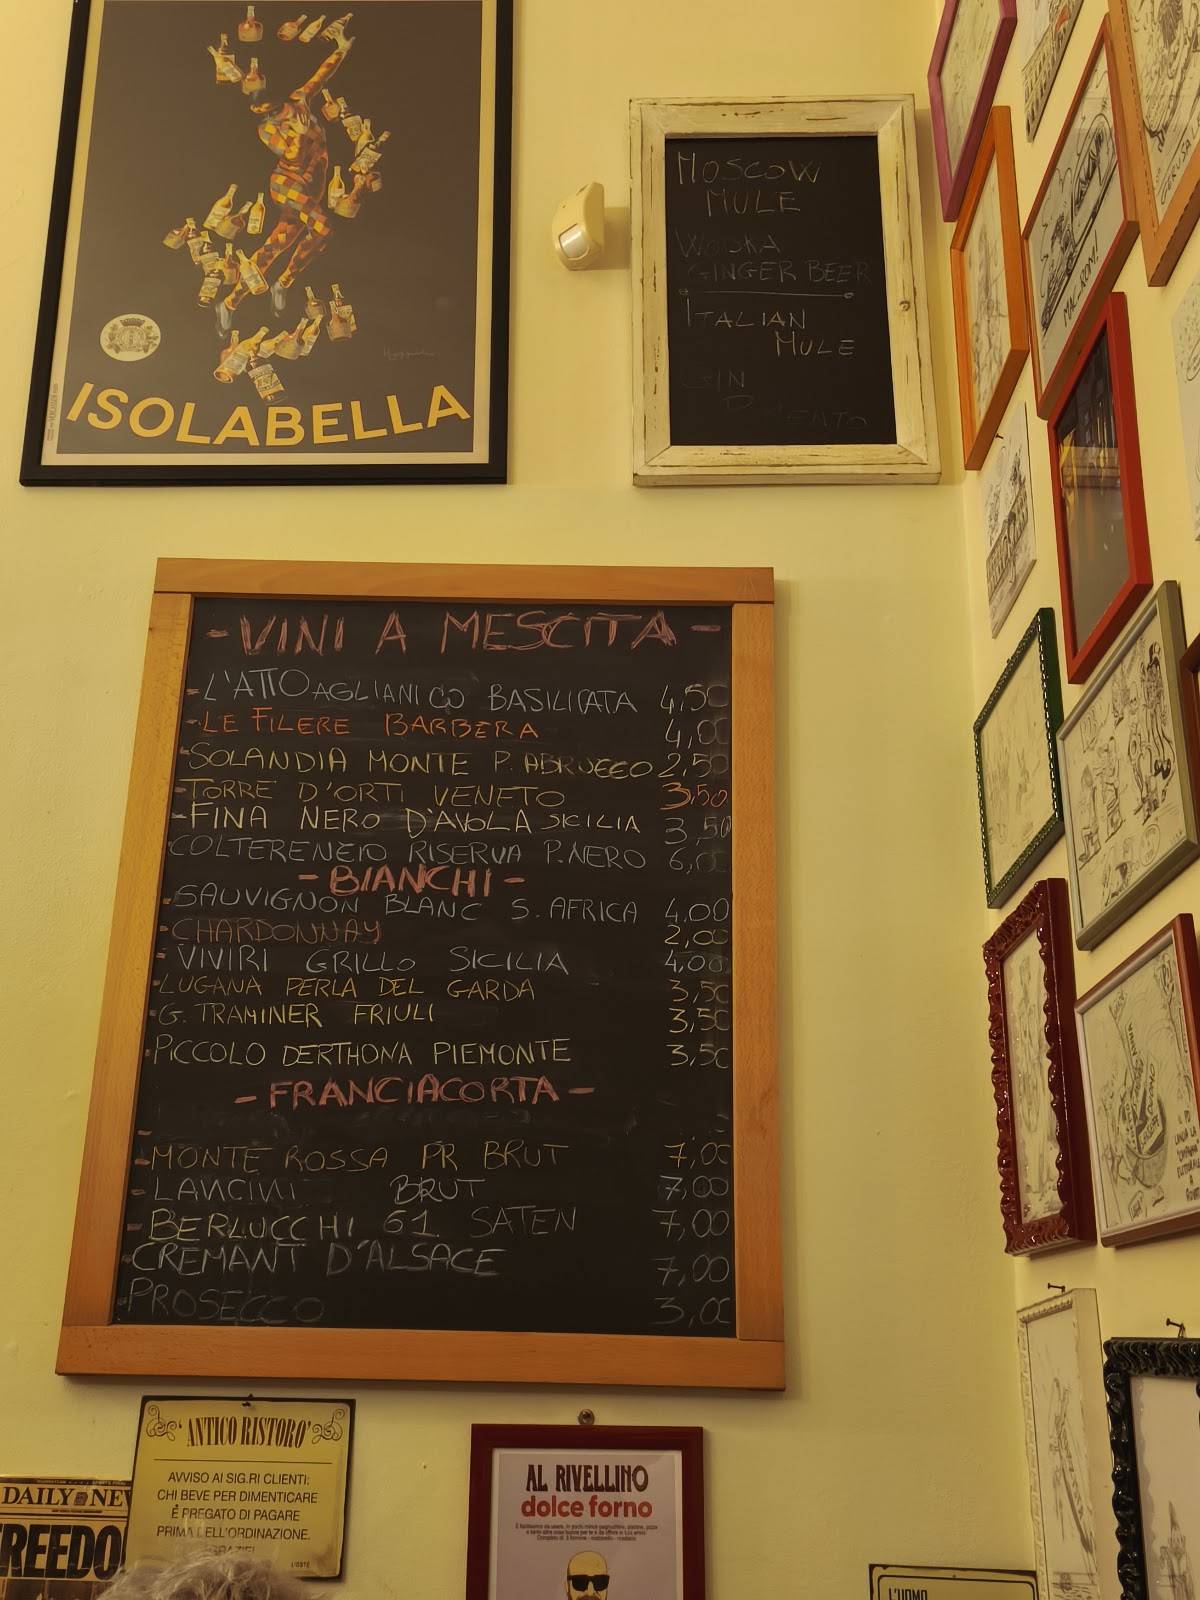 ISOLABELLA
MOSCOW
MULE
WODKA
GINGER BEER
ITALIAN
MULE
GIN
MAC-ROM!
- VINI A MESCITA -
- L'ATTO AGLIANICO BASILICATA 4,50
- LE FILERE BARBERA 4,00
- SOLANDIA MONTE P. ABRUZZO 2,50
- TORRE D'ORTI VENETO 3,50
- FINA NERO D'AVOLA SICILIA 3,50
COLTERENZIO RISERVA P. NERO 6,00
- BIANCHI -
- SAUVIGNON BLANC S. AFRICA 4,00
- CHARDONNAY 2,00
- VIVIRI GRILLO SICILIA 4,00
- LUGANA PERLA DEL GARDA 3,50
- G. TRAMINER FRIULI 3,50
- PICCOLO DERTHONA PIEMONTE 3,50
- FRANCIACORTA -
- MONTE ROSSA PR BRUT 7,00
- LANCINI BRUT 7,00
- BERLUCCHI 61 SATEN 7,00
- CREMANT D'ALSACE 7,00
- PROSECCO 3,00
'ANTICO RISTORO'
AVVISO AI SIG.RI CLIENTI:
CHI BEVE PER DIMENTICARE
È PREGATO DI PAGARE
PRIMA DELL'ORDINAZIONE.
GRAZIE!
L'OSTE
DAILY NEW
REEDO
AL RIVELLINO
dolce forno
L'UOMO